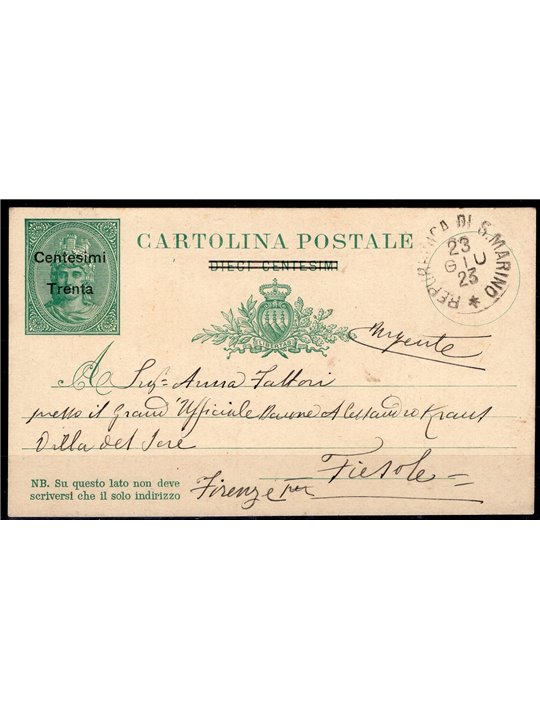 Centesimi
Trenta
CARTOLINA POSTALE
DIECI CENTESIMI
REPUBBLICA DI S. MARINO
23
GIU
23
LIBERTAS
Urgente
A Sigª Anna Fattori
presso il Grand'Ufficiale Barone Alessandro Kraus
Villa del
Fiesole
Firenze per
NB. Su questo lato non deve
scriversi che il solo indirizzo